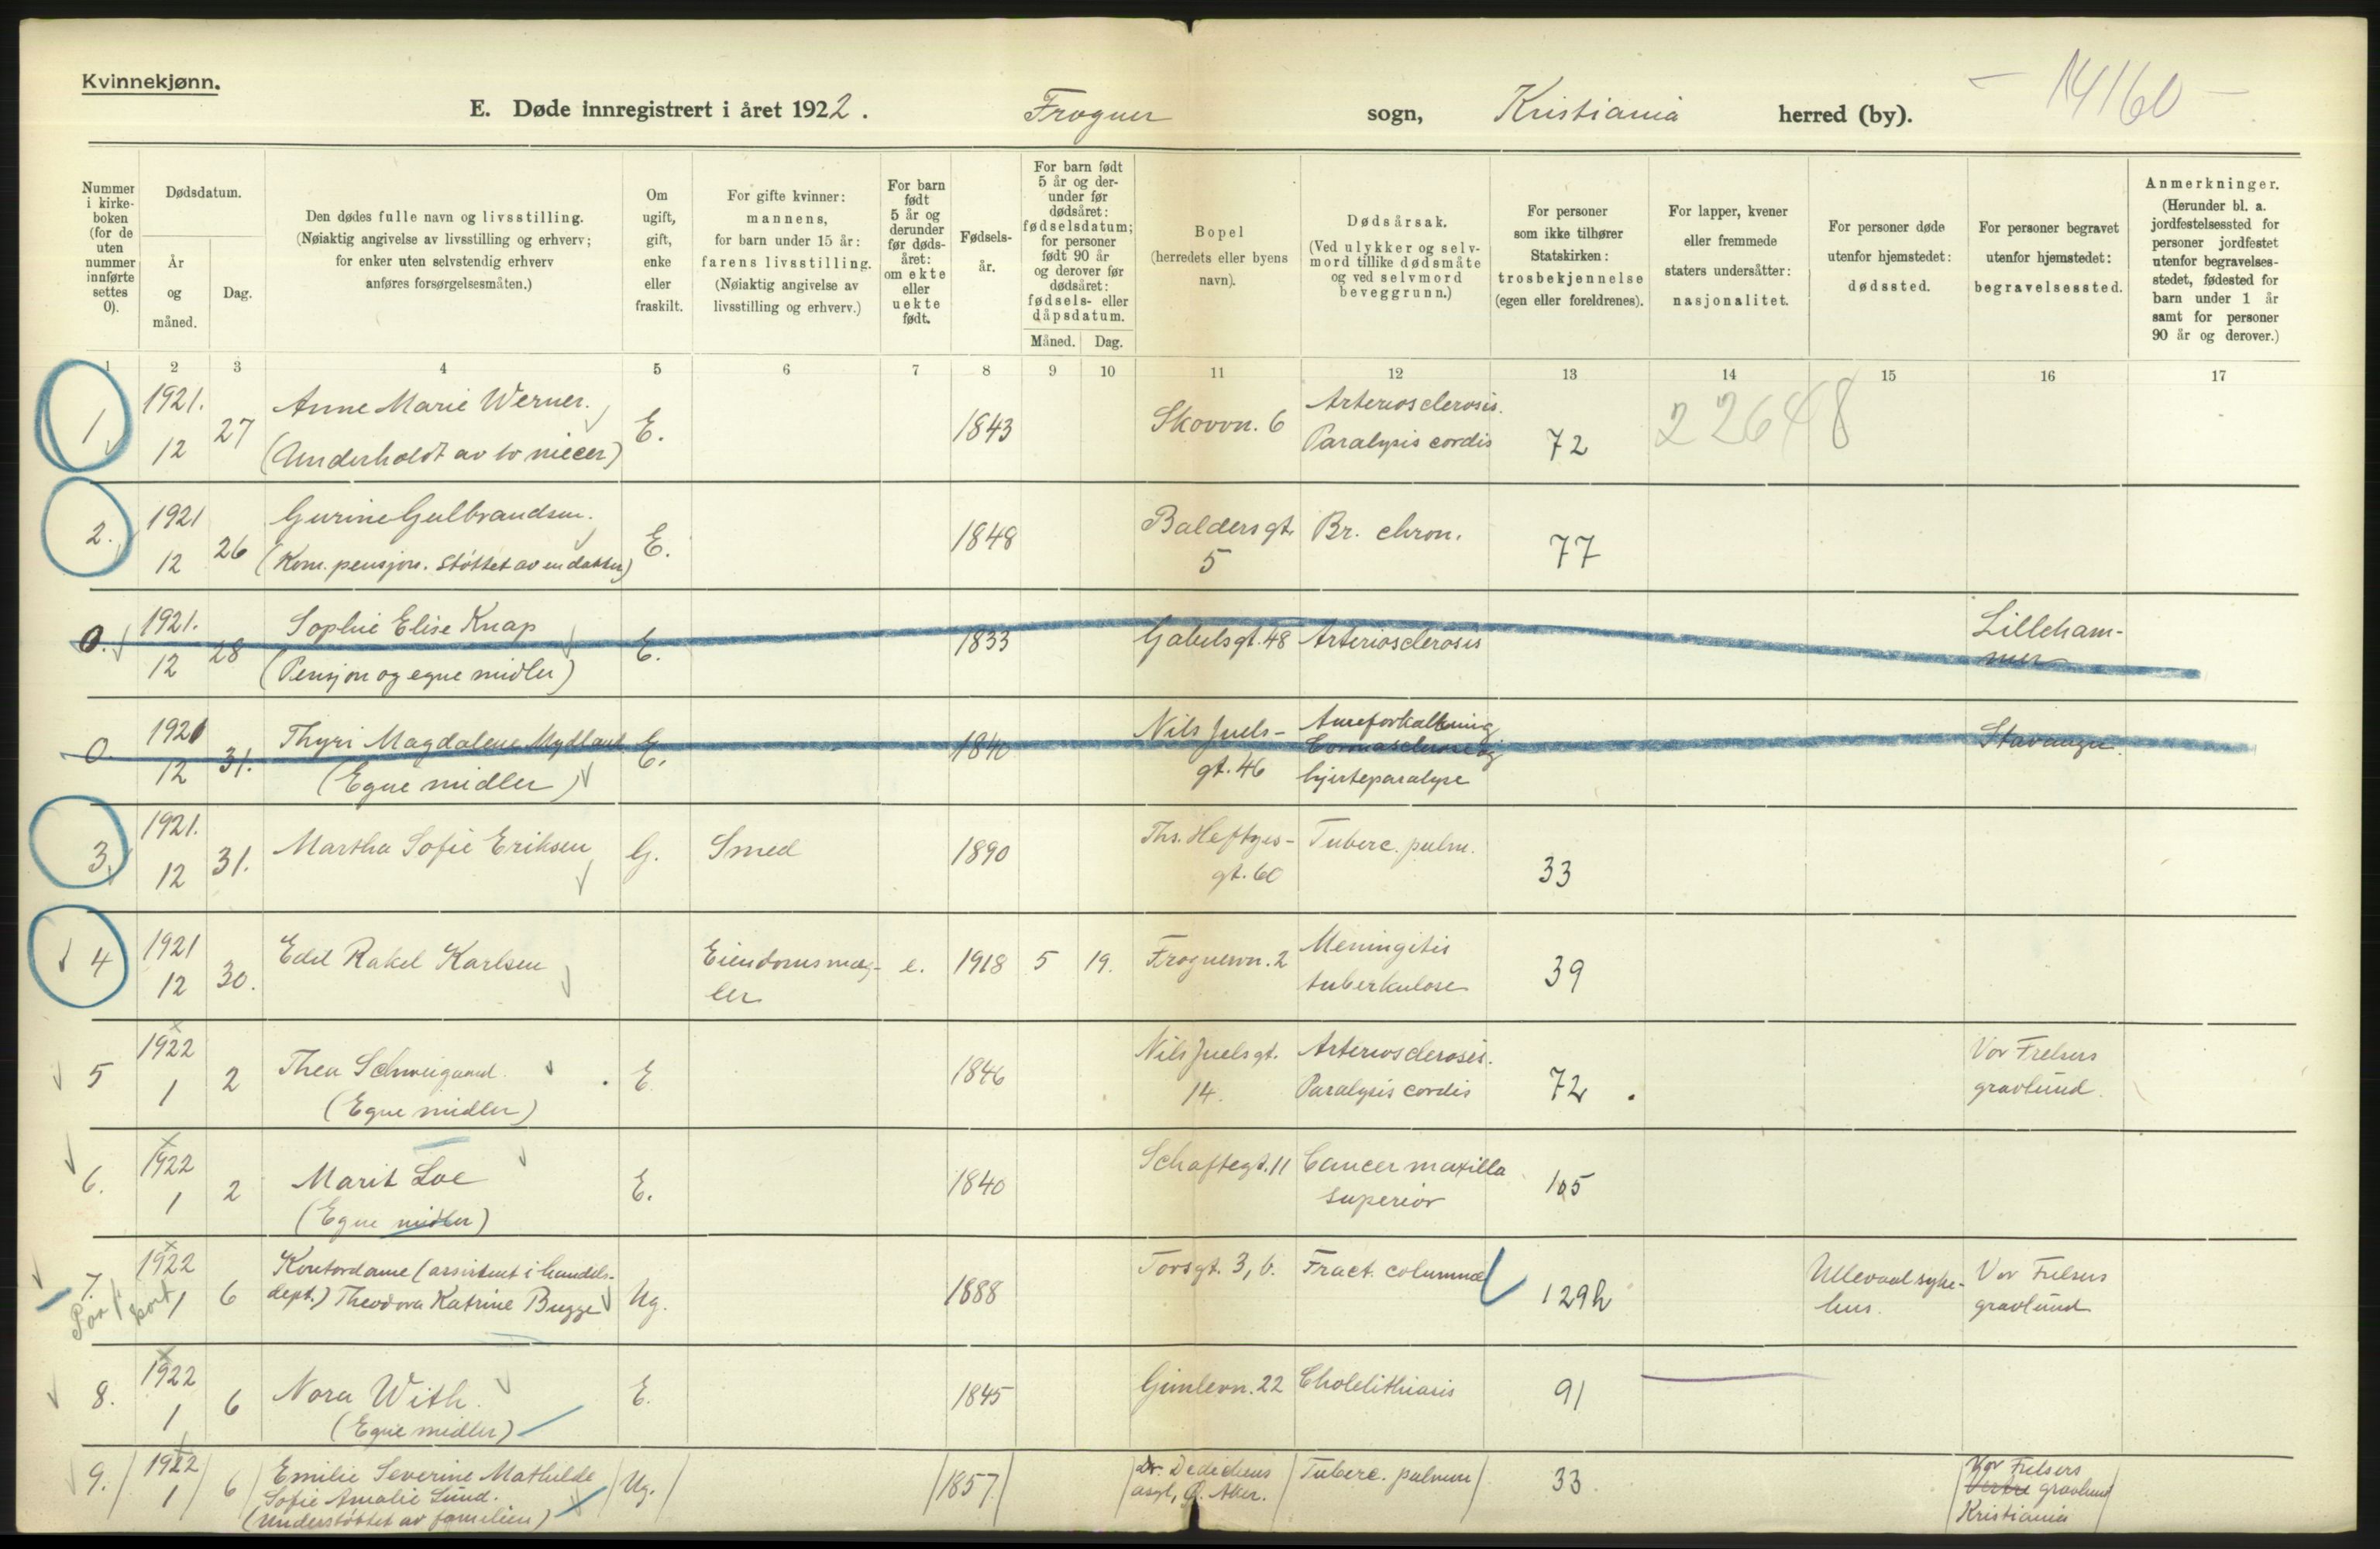 Kvinnekjønn.
E. Døde innregistrert i året 1922. Frogner sogn, Kristiania herred (by).
14160
Nummer i kirke-boken (for de uten nummer innførte settes 0).
Dødsdatum.
År og måned.
Dag.
Den dødes fulle navn og livsstilling.
(Nøiaktig angivelse av livsstilling og erhverv;
for enker uten selvstendig erhverv
anføres forsørgelsesmåten.)
Om ugift, gift, enke eller fraskilt.
For gifte kvinner:
mannens,
for barn under 15 år:
farens livsstilling.
(Nøiaktig angivelse av
livsstilling og erhverv.)
For barn født 5 år og derunder før døds-året: om ekte eller uekte født.
Fødsels-år.
For barn født 5 år og der-under før dødsåret: fødselsdatum; for personer født 90 år og derover før dødsåret: fødsels- eller dåpsdatum.
Måned. Dag.
Bopel
(herredets eller byens
navn).
Dødsårsak.
(Ved ulykker og selv-
mord tillike dødsmåte
og ved selvmord
beveggrunn.)
For personer
som ikke tilhører
Statskirken:
trosbekjennelse
(egen eller foreldrenes).
For lapper, kvener
eller fremmede
staters undersåtter:
nasjonalitet.
For personer døde
utenfor hjemstedet:
dødssted.
For personer begravet
utenfor hjemstedet:
begravelsessted.
Anmerkninger.
(Herunder bl. a.
jordfestelsessted for
personer jordfestet
utenfor begravelses-
stedet, fødested for
barn under 1 år
samt for personer
90 år og derover.)
1 2 3 4 5 6 7 8 9 10 11 12 13 14 15 16 17
1 1921. 12 27 Anne Marie Werner. E. 1843 Skovvn. 6 Arteriosclerosis. 72 22648
(Underholdt av to niecer) Paralysis cordis
2. 1921 12 26 Gurine Gulbrandsen. E. 1848 Baldersgt. 5 Br. chron. 77
(Kom. pensjon. Støttet av en datter)
0. 1921. 12 28 Sophie Elise Knap E. 1833 Gabelsgt. 48 Arteriosclerosis Lilleham-
(Pensjon og egne midler) mer
0. 1921 12 31. Thyri Magdalene Mydland E. 1840 Nils Juels- Aareforkalkning Stavanger.
(Egne midler) gt. 46 hjerteparalyse
3. 1921. 12 31. Martha Sofie Eriksen G. Smed 1890 Ths. Heftyes- Tuberc. pulm. 33
gt. 60
4 1921 12 30. Edel Rakel Karlsen Eiendomsmæg- e. 1918 5 19. Frognervn. 2 Meningitis 39
ler tuberkulose
5 1922 1 2 Thea Schweigaard. E 1846 Nils Juelsgt. Arteriosclerosis. 72 Vor Frelsers
(Egne midler) 14. Paralysis cordis gravlund.
6. 1922 1 2 Marit Loe E. 1840 Schaftegt. 11 Cancer maxilla 105
(Egne midler) superior
7. 1922 1 6 Kontordame (assistent i handels- Ug. 1888 Torsgt. 3, b. Fract. columnae 129h Ullevaal syke- Vor Frelsers
dept.) Theodora Katrine Bugge hus. gravlund
8. 1922 1 6 Nora With. E. 1845 Gimlevn. 22 Cholelithiasis 91
(Egne midler)
9. 1922 1 6 Emilie Severine Mathilde Ug. 1857 Dr. Dedichens Tuberc. pulmon 33 Vor Frelsers
Sofie Amalie Lund. asyl, Ø. Aker. Vestre gravlund
(Understøttet av familien) Kristiania